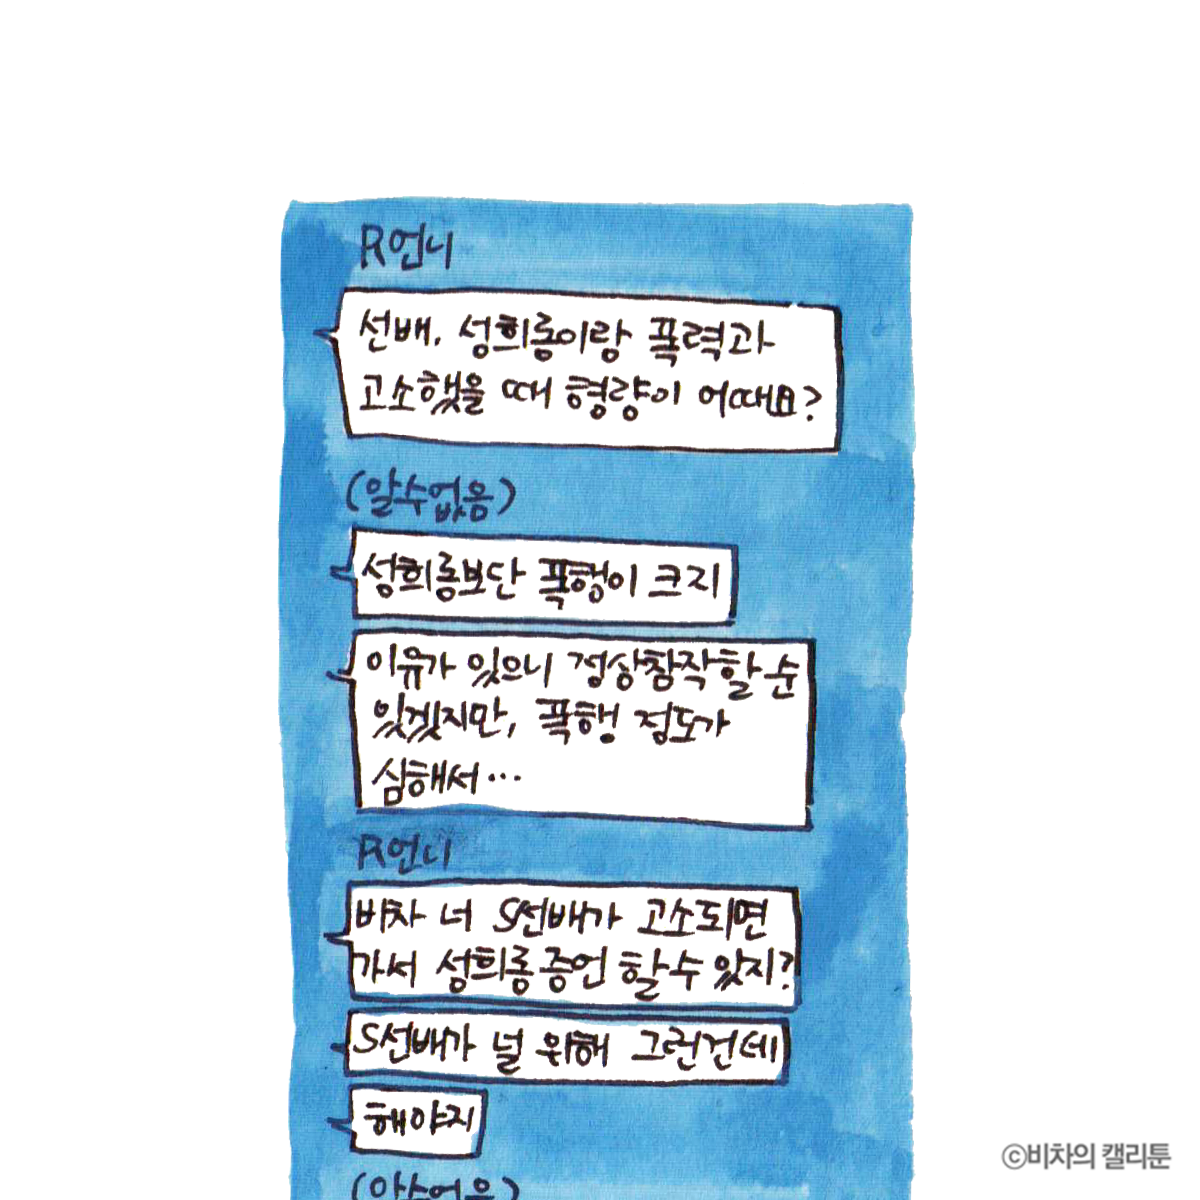 R언니
선배, 성희롱이랑 폭력과
고소했을 때 형량이 어때요?
(알수없음)
성희롱보단 폭행이 크지
이유가 있으니 정상참작할 순
있겠지만, 폭행 정도가
심해서...
R언니
비차 너 S선배가 고소되면
가서 성희롱 증언 할 수 있지?
S선배가 널 위해 그런건데
해야지
(알수없음)
©비차의 캘리툰